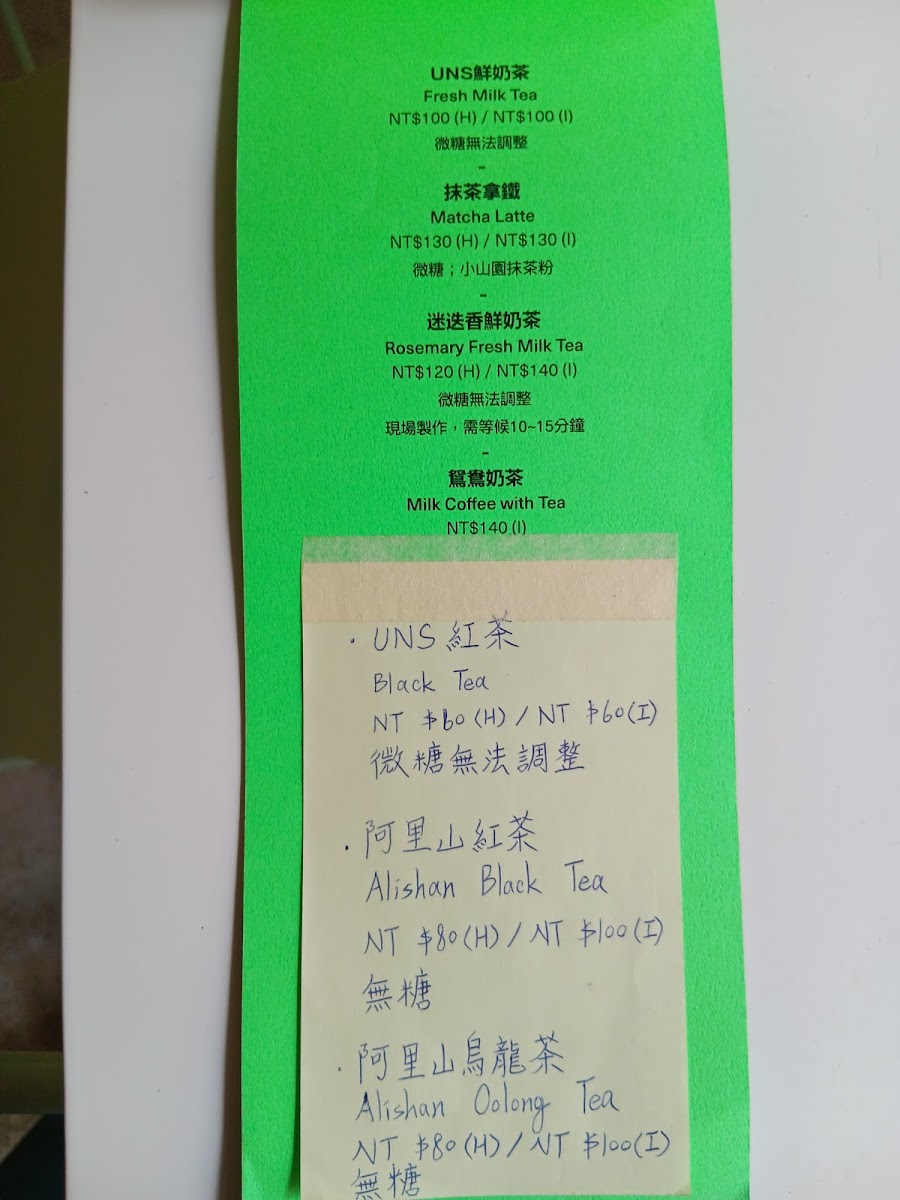 UNS鮮奶茶
Fresh Milk Tea
NT$100 (H) / NT$100 (I)
微糖無法調整
-
抹茶拿鐵
Matcha Latte
NT$130 (H) / NT$130 (I)
微糖；小山園抹茶粉
-
迷迭香鮮奶茶
Rosemary Fresh Milk Tea
NT$120 (H) / NT$140 (I)
微糖無法調整
現場製作，需等候10~15分鐘
-
鴛鴦奶茶
Milk Coffee with Tea
NT$140 (I)
· UNS 紅茶
Black Tea
NT $60 (H) / NT $60 (I)
微糖無法調整
· 阿里山紅茶
Alishan Black Tea
NT $80 (H) / NT $100 (I)
無糖
· 阿里山烏龍茶
Alishan Oolong Tea
NT $80 (H) / NT $100 (I)
無糖